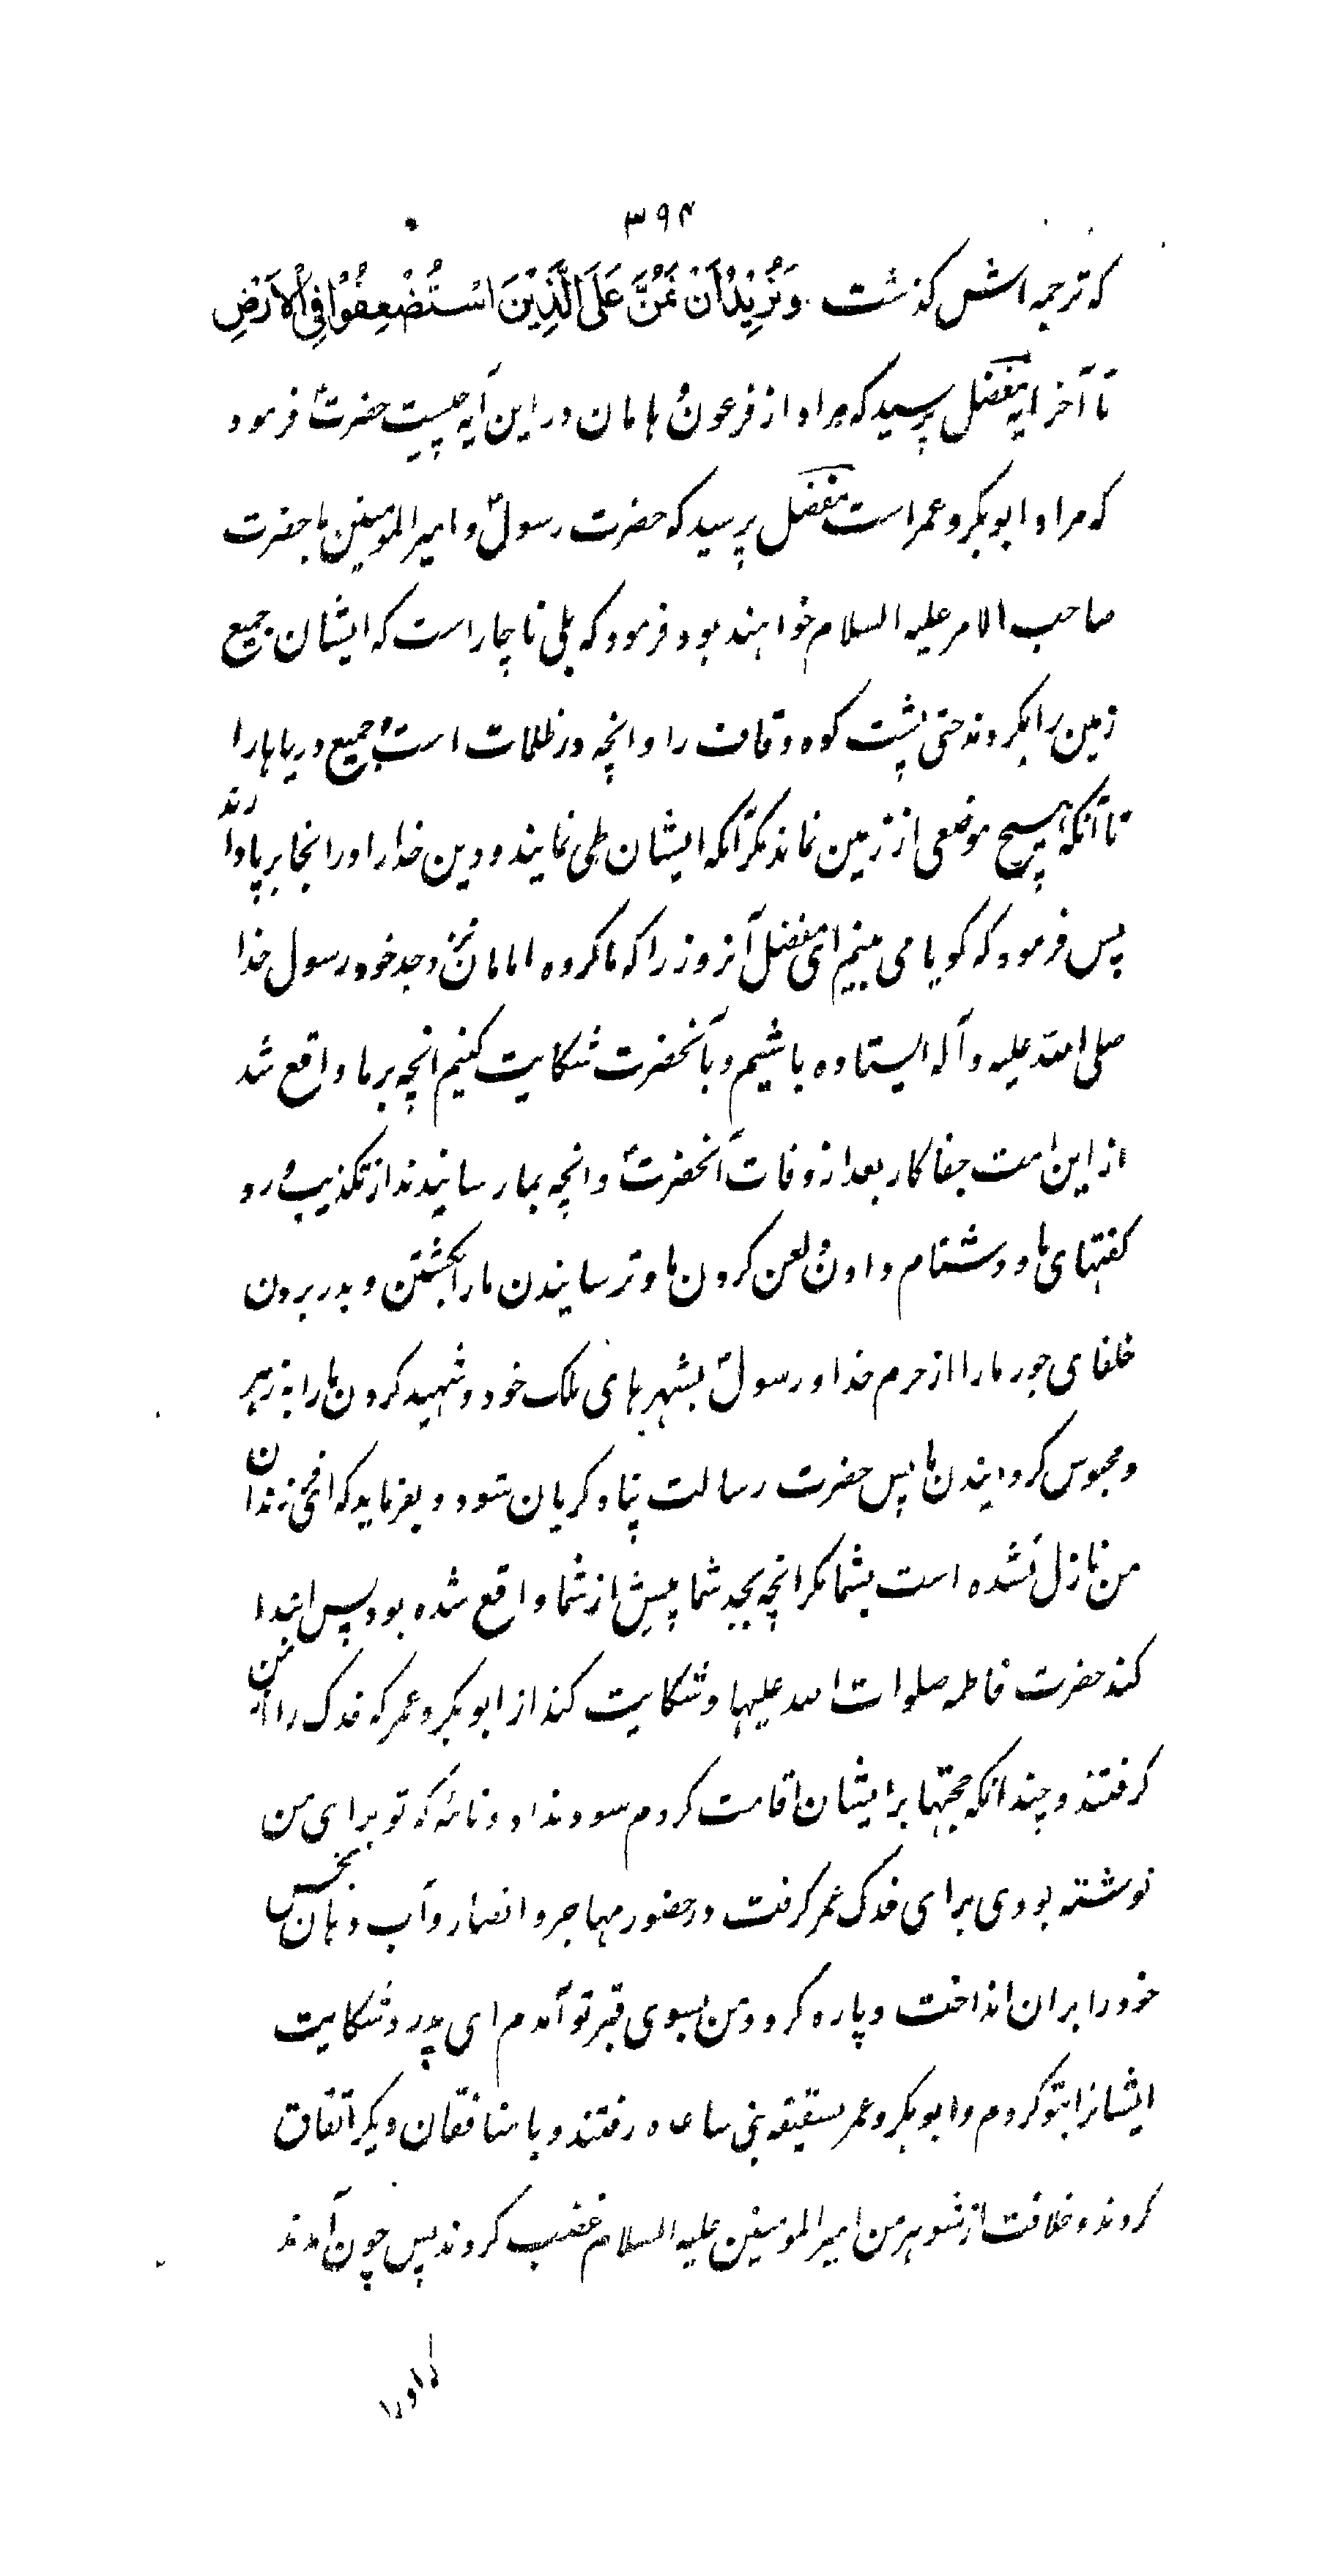 ۳۹۴
که ترجمه اش کذشت وَنُرِيْدُ اَنْ نَمُنَّ عَلَى الَّذِيْنَ اسْتُضْعِفُوْا فِى الْاَرْضِ
تا آخر ایه مفضل پرسید که مراد از فرعون و هامان در این آیه چیست حضرتؑ فرمود
که مراد ابوبکر و عمر است مفضل پرسید که حضرت رسولؐ و امیرالمومنین با حضرت
صاحب الامر علیه السلام خواهند بود فرمود که بلی ناچار است که ایشان جمیع
زمین را بکردند حتی پشت کوه و قاف را و انچه در ظلمات است و جمیع دریاها را
تا آنکه هیچ موضعی از زمین نماند مکر آنکه ایشان طی نمایند و دین خدا را در انجا برپا دارند
پس فرمود که کویا می بینم ای مفضل آنروز را که ما کروه امامان نزد جد خود رسول خدا
صلی الله علیه و آله ایستاده باشیم و بآنحضرت شکایت کنیم انچه بر ما واقع شد
از این امت جفاکار بعد از وفات آنحضرتؐ و انچه بما رسانیدند از تکذیب و رد
کفتهای ما و دشنام دادن و لعن کردن ما و ترسانیدن ما را بکشتن و بدر بردن
خلفای جور ما را از حرم خدا و رسولؐ بشهرهای ملک خود و شهید کردن ما را به زهر
و محبوس کردانیدن ما پس حضرت رسالت پناه کریان شود و بفرماید که ای فرزندان
من نازل نشده است بشما مکر انچه بجد شما پیش از شما واقع شده بود پس ابتدا
کند حضرت فاطمه صلوات الله علیها و شکایت کند از ابوبکر و عمر که فدک را از من
کرفتند و چندانکه حجتها بر ایشان اقامت کردم سود نداد و نامۀ که تو برای من
نوشته بودی برای فدک عمر کرفت در حضور مهاجر و انصار و آب دهان نجس
خود را بران انداخت و پاره کرد و من بسوی قبر تو آمدم ای پدر و شکایت
ایشانرا بتو کردم و ابوبکر و عمر بسقیفه بنی ساعده رفتند و با منافقان دیکر اتفاق
کردند و خلافت از شوهر من امیرالمومنین علیه السلام غصب کردند پس چون آمدند